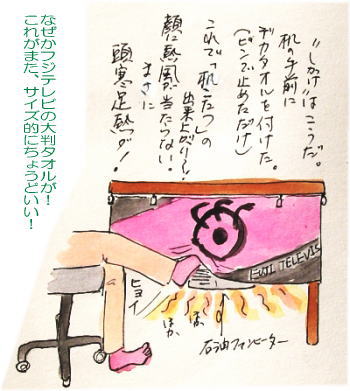 なぜかフジテレビの大判タオルが！
これがまた、サイズ的にちょうどいい！
"しかけ"はこうだ。
机の手前に
デカタオルを付けた。
(ピンで止めただけ)
これで「机こたつ」の
出来上がりー！
顔に熱風が当たらない！
まさに
頭寒足熱が！
FUJI TELEVIS
ヒョイ
ぽか
ぽか
石油ファンヒーター